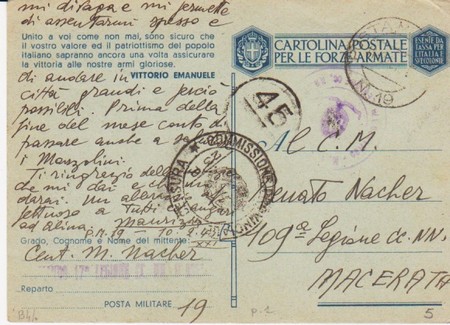 mi di Papa e mi permette
di assentarmi spesso e
Unito a voi come non mai, sono sicuro che
il vostro valore ed il patriottismo del popolo
italiano sapranno ancora una volta assicurare
la vittoria alle nostre armi gloriose.
VITTORIO EMANUELE
di andare in
città grandi e perciò
possibili. Prima della
fine del mese conto di
passare anche a
i Mazzolini.
Ti ringrazio
che mi dai e che mi
darai. Un
a tutti
ad Alina Maurizio
P.M. 19 - 10-2-43
XXI
Grado, Cognome e Nome del mittente:
Cent. M. Nacher
Reparto
POSTA MILITARE 19
CARTOLINA POSTALE
PER LE FORZE ARMATE
È ESENTE
DA TASSA PER
L'ITALIA E
SPEDIZIONE
N. 19
45
CENSURA COMMISSIONE
Al C. M.
Renato Nacher
109ª Legione CC. NN.
MACERATA
P. 2
5